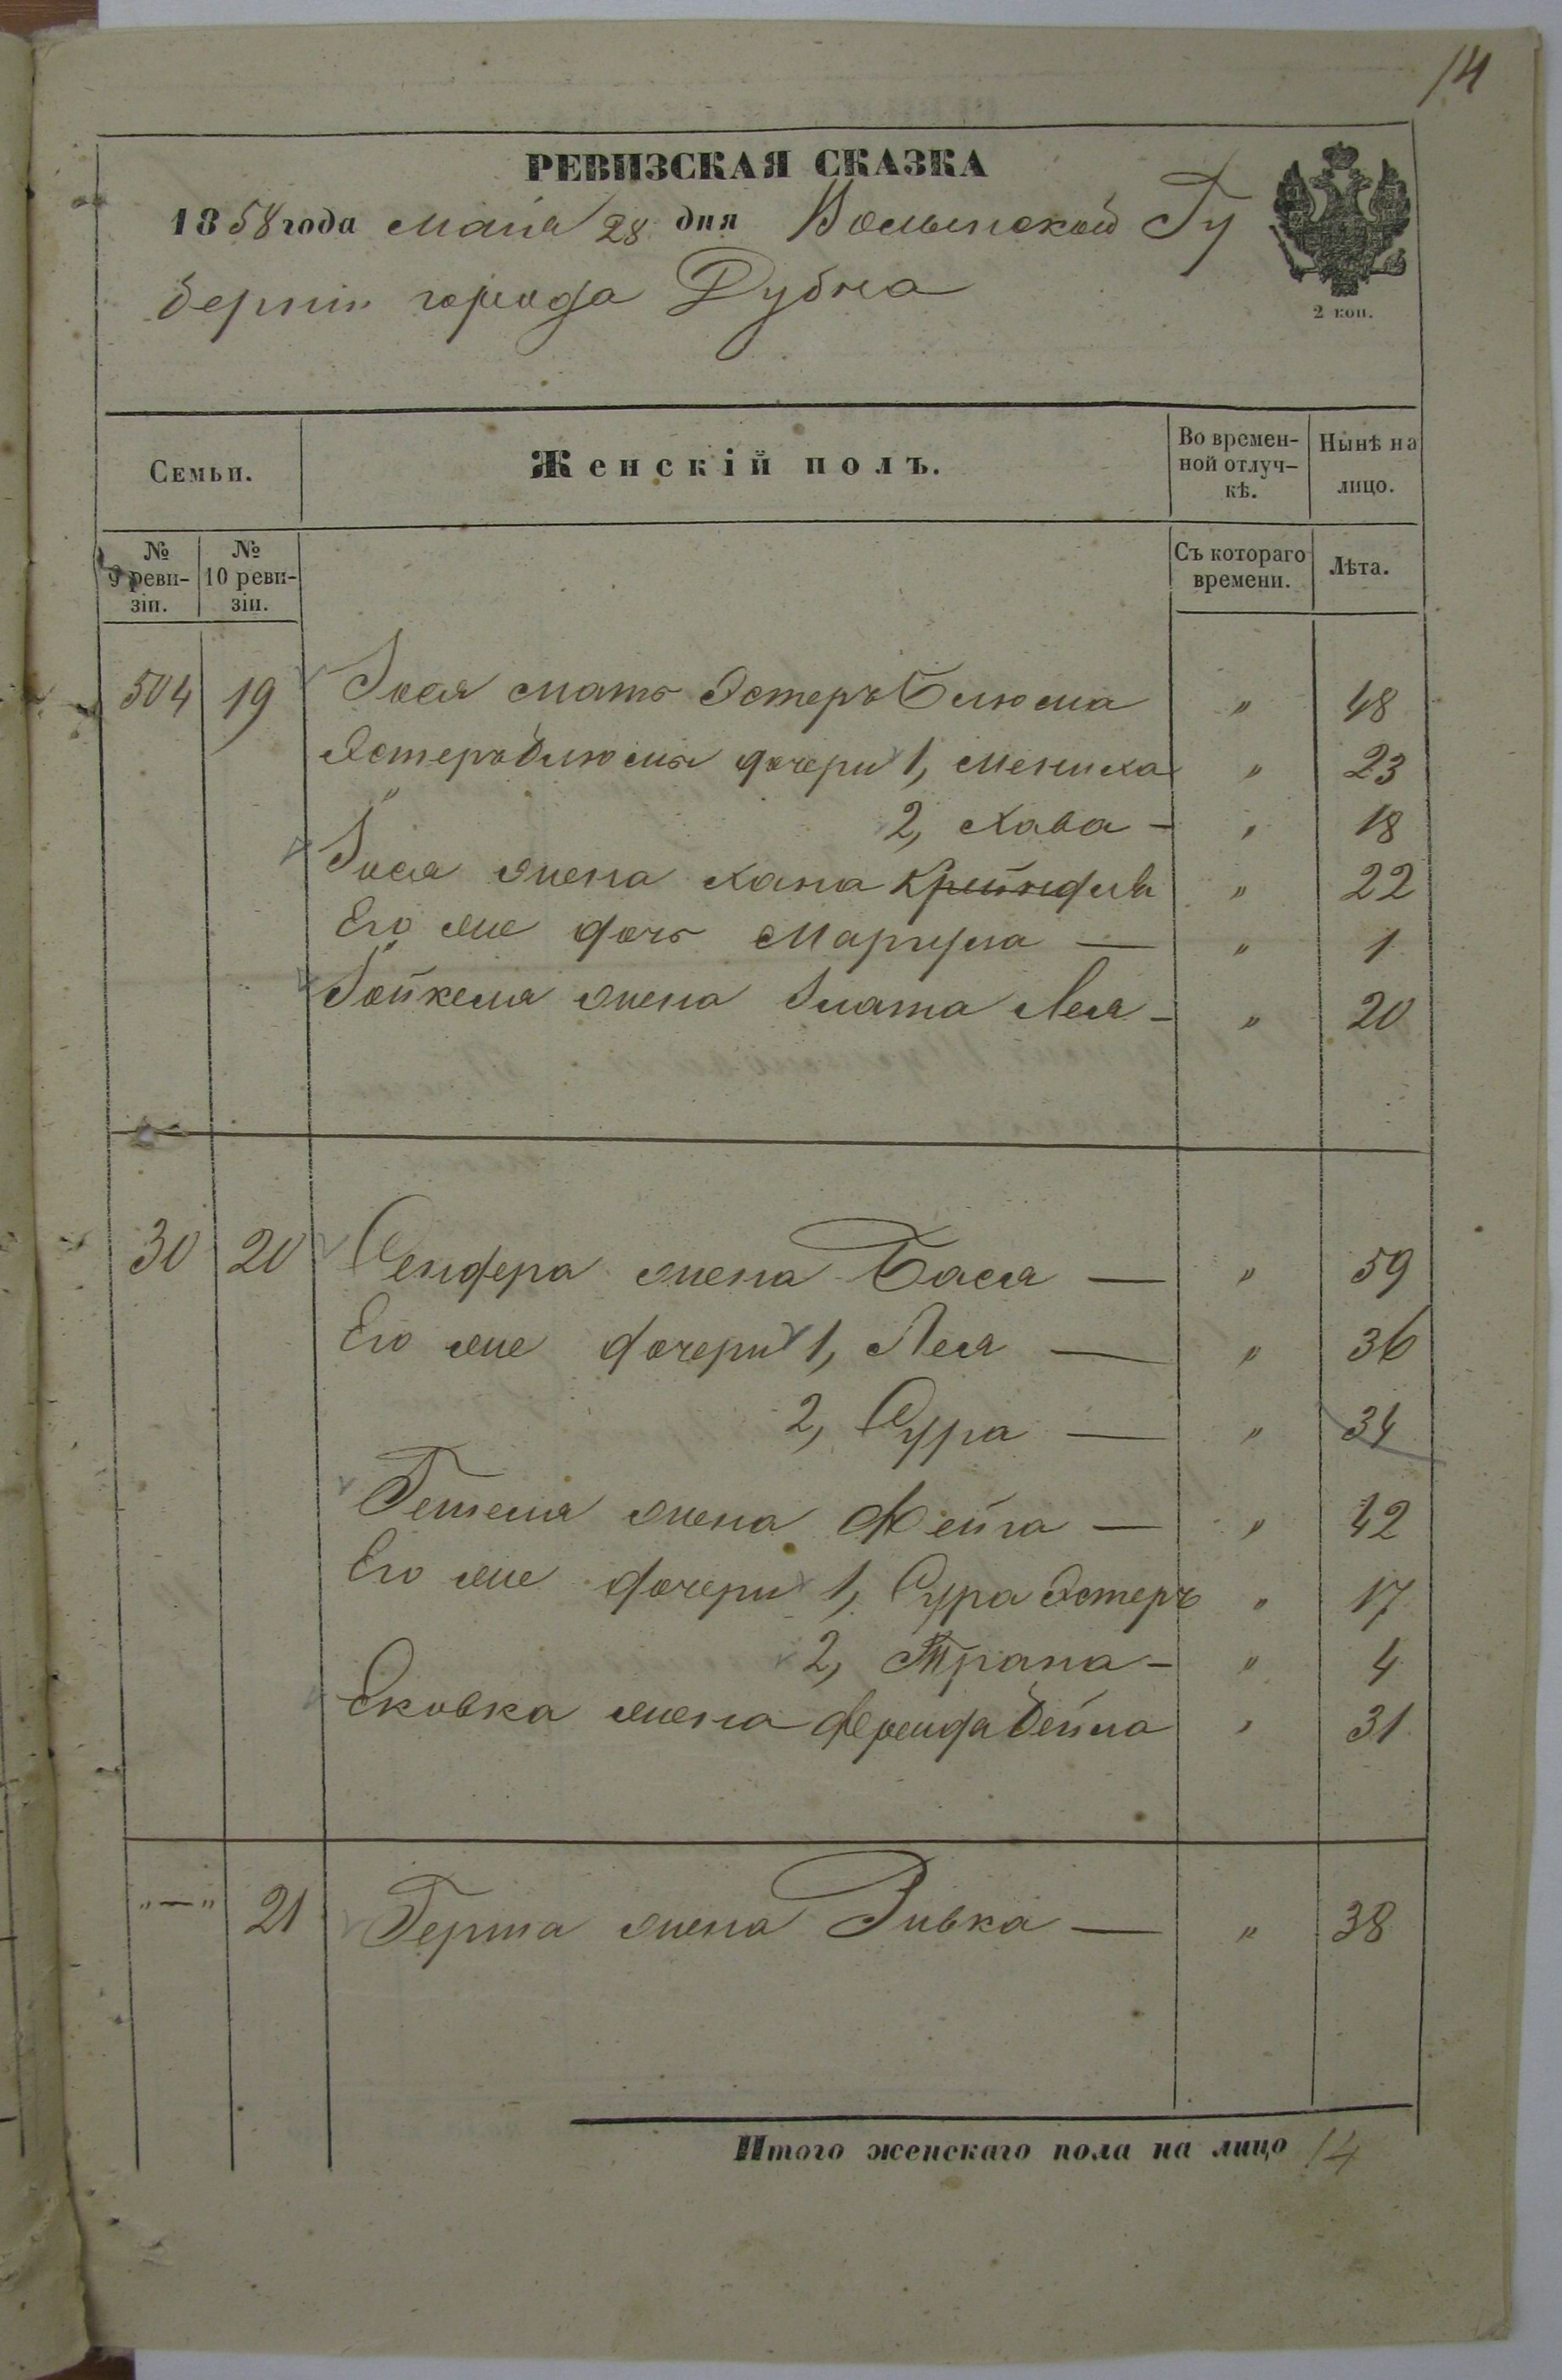 14
РЕВИЗСКАЯ СКАЗКА
1858 года мая 28 дня Волынской Гу
берніи города Дубна
2 коп.
Семьи.
Женскій полъ.
Во времен-
ной отлуч-
кѣ.
Нынѣ на
лицо.
№
9 реви-
зіи.
№
10 реви-
зіи.
Съ котораго
времени.
Лѣта.
504 19 Іося мать Эстеръ Блюма " 48
Эстеръ Блюмы дочери 1, Мениха " 23
2, Хава - " 18
Іося жена Хана Крейндля " 22
Его же дочь — " 1
жена Злата Лея - " 20
30 20 Сендера жена Бася — " 59
Его же дочери 1, Лея — " 36
2, Сура — " 34
жена Фейга — " 42
Его же дочери 1, Сура Эстеръ " 17
2, - " 4
жена Фрейда Бейла " 31
"—" 21 Герша жена Ривка — " 38
Итого женскаго пола на лицо 14